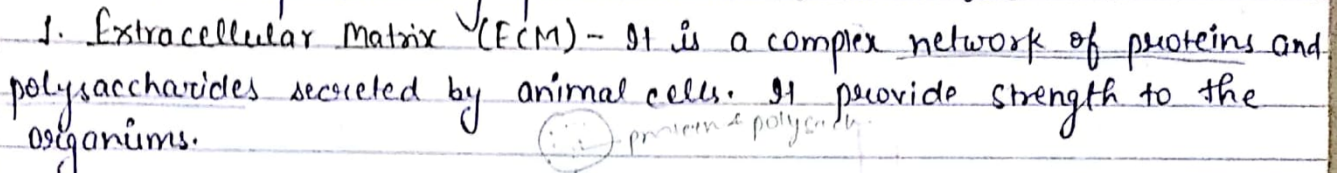 1. Extracellular Matrix (ECM) - It is a complex network of proteins and
polysaccharides secreted by animal cells. It provide strength to the
organisms.
protein &